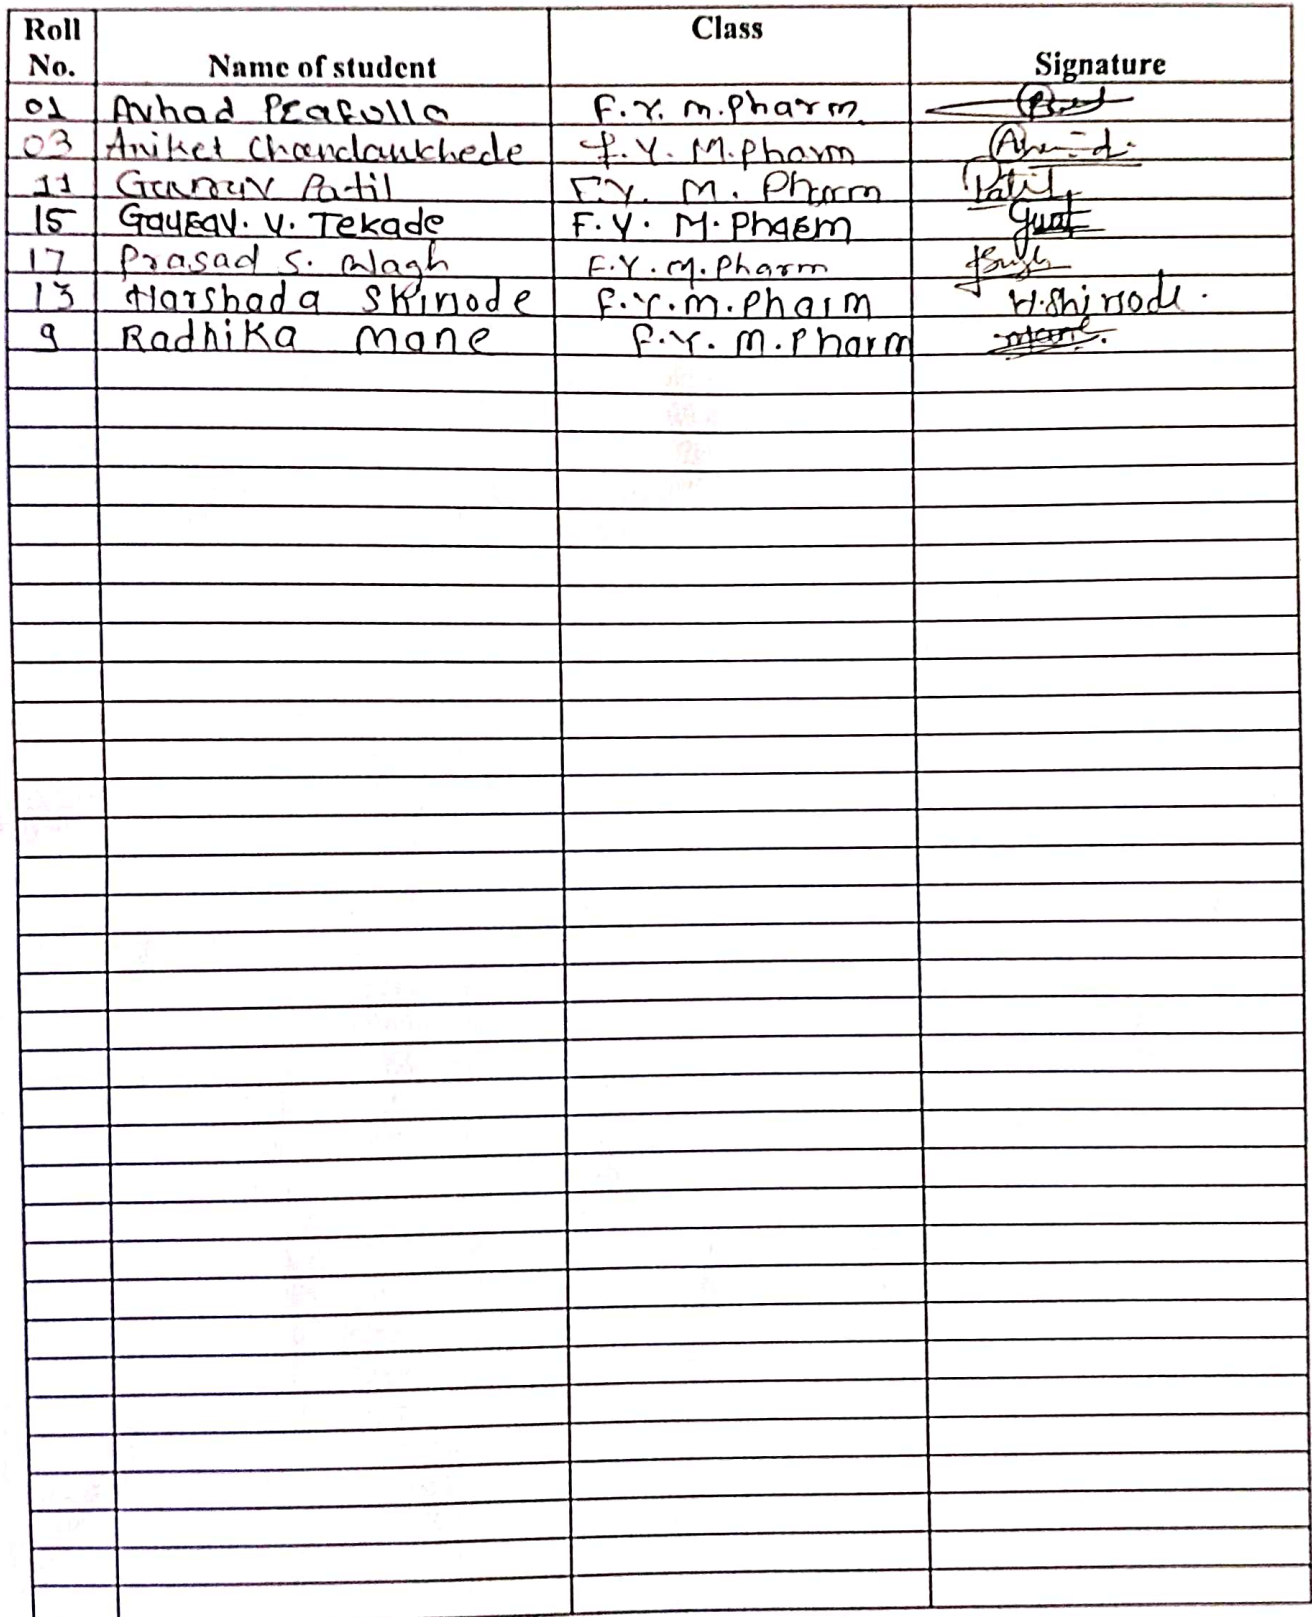 Roll No. Name of student Class Signature
01 Avhad Prafulla F.Y. M.Pharm
03 Aniket Chandankhede F.Y. M.Pharm
11 Gaurav Patil F.Y. M. Pharm Patil
15 Gaurav. V. Tekade F.Y. M. Pharm
17 Prasad S. Wagh F.Y. M. Pharm
13 Harshada Shirode F.Y. M. Pharm H.Shirode.
9 Radhika Mane F.Y. M. Pharm Mane